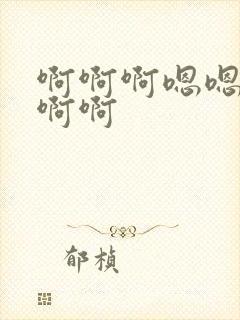 啊啊啊嗯嗯
啊啊
郁桢